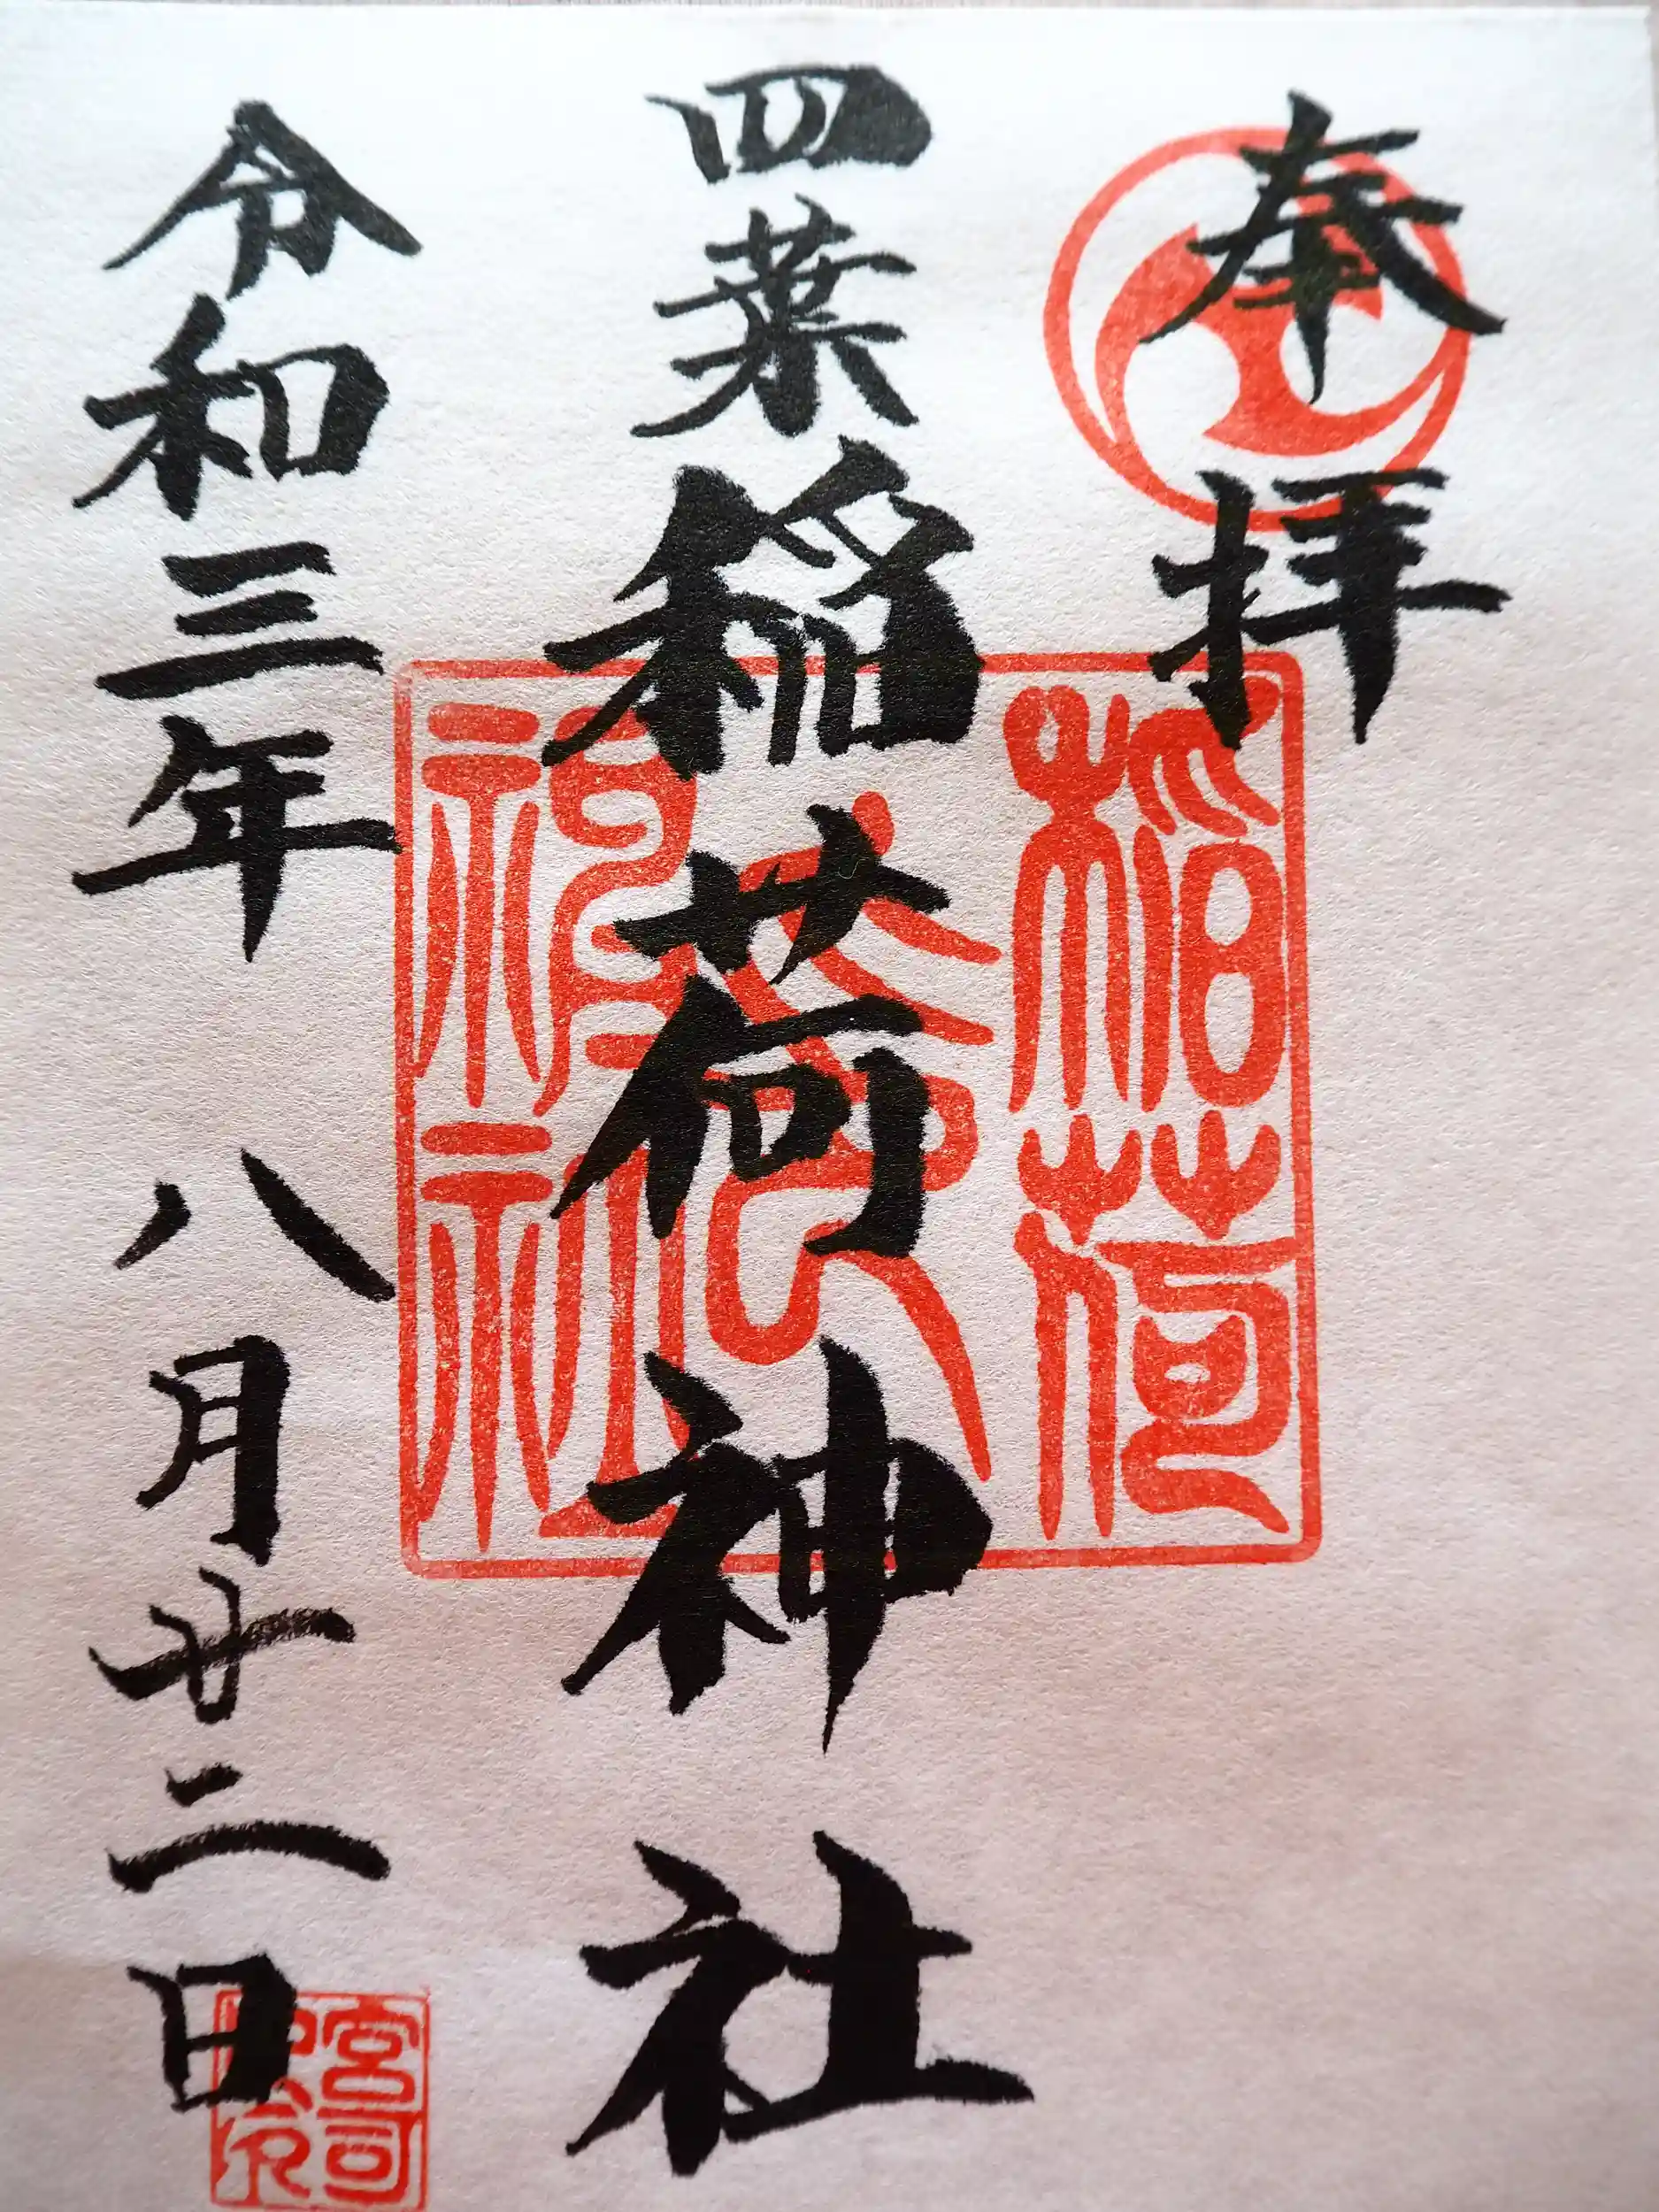 奉拝
四葉稲荷神社
令和三年 八月廿二日
稲荷
神社
宮司